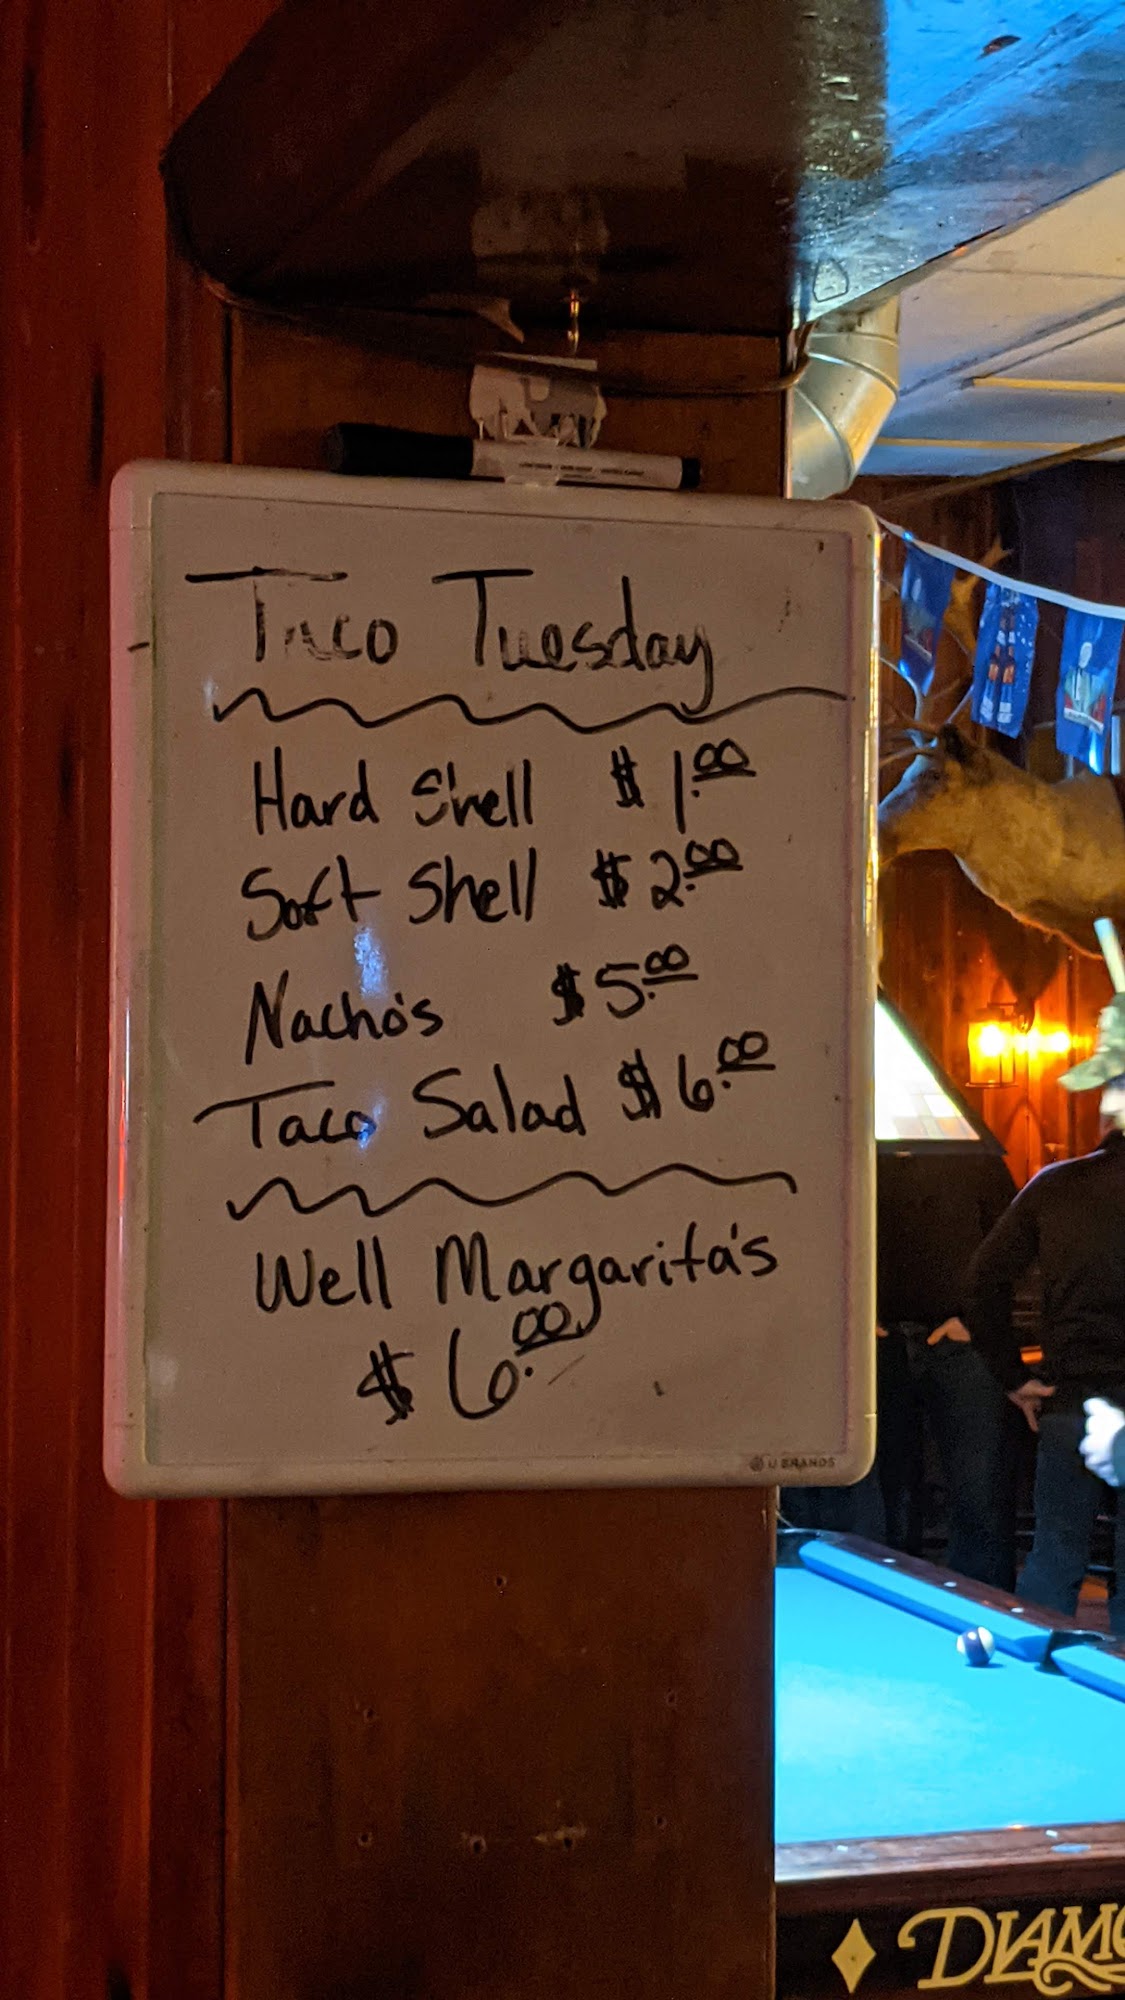 Taco Tuesday
Hard Shell $1.00
Soft Shell $2.00
Nacho's $5.00
Taco Salad $6.00
Well Margarita's
$6.00
U BRANDS
DIAMO